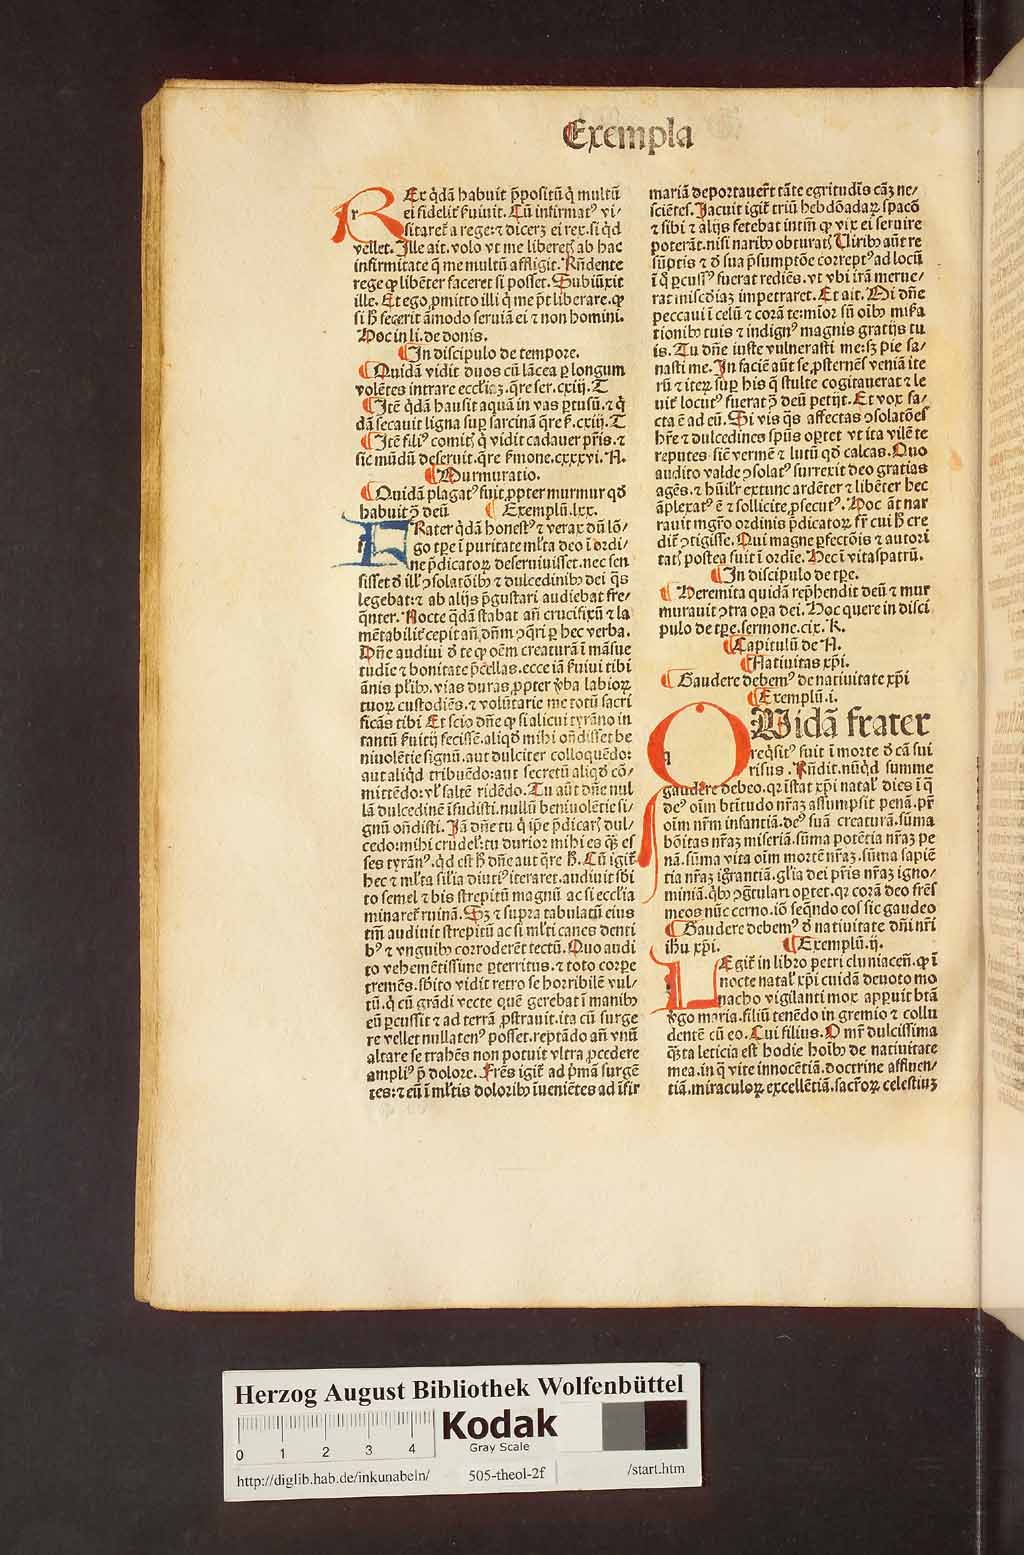 Exempla
REx q̄dā habuit p̄positū q̇ multū
ei fidelit̃ ẜuiuit. Cū infirmatꝰ vi-
sitaret̃ a rege: ⁊ dicerꝫ ei rex. si q̇d
vellet. Ille ait. volo vt me liberetꝭ ab hac
infirmitate q̄ me multū affligit. Rn̄dente
rege ꝙ libēter faceret si posset. Subiūxit
ille. Et ego ꝓmitto illi q̇ me p̄t liberare. ꝙ
si h̄ fecerit āmodo seruiā ei ⁊ non homini.
Hoc in li. de donis.
¶ In discipulo de tempore.
¶ Quidā vidit duos cū lācea ꝑ longum
volētes intrare eccl̓iaꝫ. q̄re ser. cxiij. T
¶ Itē q̇dā hausit aquā in vas ꝑtusū. ⁊ q̇
dā secauit ligna suꝑ sarcinā q̄re ẜ. cxiij. T
¶ Itē filiꝰ comitꝭ q̇ vidit cadauer pr̄is. ⁊
sic mūdū deseruit. q̄re ẜmone. cxxxvi. A.
¶ Murmuratio.
¶ Quidā plagatꝰ fuit ꝓpter murmur qd̄
habuit ꝯ̄ deū ¶ Exemplū. lxx.
FRater q̇dā honestꝰ ⁊ verax dū lō-
go tꝑe ī puritate ml̓ta deo ī ordi-
ne p̄dicatoꝝ deseruiuisset. nec sen
sisset ꝺ ill̓ ꝯsolatōibꝰ ⁊ dulcedinibꝰ dei q̄s
legebat: ⁊ ab alijs p̄gustari audiebat fre-
q̄nter. Nocte q̇dā stabat an̄ crucifixū ⁊ la
mētabilit̃ cepit an̄ dn̄m ꝯq̄ri ꝑ hec verba.
Dn̄e audiui ꝺ te ꝙ oēm creaturā ī māsue
tudīe ⁊ bonitate p̄cellas. ecce iā ẜuiui tibi
ānis pl̓ibꝰ. vias duras ꝓpter v̓ba labioꝝ
tuoꝝ custodiēs. ⁊ volūtarie me totū sacri
ficās tibi Et scio dn̄e ꝙ si alicui tyrāno in
tantū ẜuitij fecissē. aliqd̄ mihi on̄disset be
niuolētie signū. aut dulciter colloquēdo:
aut aliqd̄ tribuēdo: aut secretū aliqd̄ cō-
mittēdo: vl̓ saltē ridēdo. Tu aūt dn̄e nul
lā dulcedinē īfudisti. nullū beniuolētie si-
gnū on̄disti. Iā dn̄e tu q̇ ip̄e p̄dicarꝭ dul-
cedo: mihi crudel̓: tu durior mihi es q̄ꝫ es
ses tyrānꝰ. q̇d est h̄ dn̄e aut q̄re h̄. Cū igit̃
hec ⁊ ml̓ta sil̓ia diutiꝰ iteraret. audiuit sb̓i
to semel ⁊ bis strepitū magnū ac si eccl̓ia
minaret̃ ruinā. Sꝫ ⁊ supra tabulatū eius
tm̄ audiuit strepitū ac si ml̓ti canes denti
bꝰ ⁊ vnguibꝰ corroderēt tectū. Quo audi
to vehemētissime ꝑterritus. ⁊ toto corꝑe
tremēs. sb̓ito vidit retro se horribilē vul-
tū. q̇ cū grādi vecte quē gerebat ī manibꝰ
eū ꝑcussit ⁊ ad terrā ꝓstrauit. ita cū surge
re vellet nullatenꝰ posset. reptādo an̄ vnū
altare se trahēs non potuit vltra ꝓcedere
ampliꝰ p̄ dolore. Fr̄es igit̃ ad p̄mā surgē
tes: ⁊ eū ī ml̓tis doloribꝰ īueniētes ad īfir
mariā deportauer̄t tāte egritudīs cāꝫ ne-
sciētes. Iacuit igit̃ triū hebdōadaꝝ spacō
⁊ sibi ⁊ alijs fetebat intm̄ ꝙ vix ei seruire
poterāt. nisi naribꝰ obturatꝭ Uiribꝰ aūt re
sūptis ⁊ ꝺ sua p̄sumptōe correptꝰ ad locū
ī q̇ ꝑcussꝰ fuerat rediēs. vt vbi irā merue-
rat misc̓diaꝫ impetraret. Et ait. Mi dn̄e
peccaui ī celū ⁊ corā te: mior sū oībꝰ misͣra
tionibꝰ tuis ⁊ indignꝰ magnis gratijs tu
is. Tu dn̄e iuste vulnerasti me: sꝫ pie sa-
nasti me. In faciē aūt se ꝓsternēs veniā ite
rū ⁊ iteꝝ suꝑ his q̄ stulte cogitauerat ⁊ le
uit̃ locutꝰ fuerat ꝯ̄ deū petijt. Et vox fa-
cta ē ad eū. Si vis q̄s affectas ꝯsolatōes
hr̄e ⁊ dulcedines sp̄us oꝑtet vt ita vilē te
reputes sic̄ vermē ⁊ lutū qd̄ calcas. Quo
audito valde ꝯsolatꝰ surrexit deo gratias
agēs. ⁊ hūil̓r extunc ardēter ⁊ libēter hec
āplexatꝰ ē ⁊ sollicite ꝓsecutꝰ. Hoc āt nar
rauit mgr̄o ordinis p̄dicatoꝝ fr̄i cui h̄ cre
dit̃ ꝯtigisse. Qui magne ꝑfectōis ⁊ autori
tatꝭ postea fuit ī ordīe. Hec ī vitaspatrū.
¶ In discipulo de tꝑe.
¶ Heremita quidā rep̄hendit deū ⁊ mur
murauit ꝯtra oꝑa dei. Hoc quere in disci
pulo de tꝑe. sermone. cix. K.
¶ Capitulū de N.
¶ Natiuitas xp̄i.
¶ Gaudere debemꝰ de natiuitate xp̄i
¶ Exemplū. i.
QUidā frater
req̇sitꝰ fuit ī morte ꝺ cā sui
risus. Rn̄dit. nūq̇d summe
gaudere debeo. qꝛ īstat xp̄i natal̓ dies ī q̄
deꝰ oīm btitudo nr̄aꝫ assumpsit penā. pr̄
oīm nr̄m infantiā. deꝰ suā creaturā. sūma
bōitas nr̄aꝫ miseriā. sūma potētia nr̄aꝫ pe
nā. sūma vita oīm mortē nr̄aꝫ. sūma sapiē
tia nr̄aꝫ ig̓rantiā. gl̓ia dei pr̄is nr̄aꝫ igno-
miniā. q̇bꝰ ꝯg̓tulari oꝑtet. qꝛ corā deo fr̄es
meos nūc cerno. iō seq̄ndo eos sic gaudeo
¶ Gaudere debemꝰ ꝺ natiuitate dn̄i nr̄i
ih̄u xp̄i. ¶ Exemplū. ij.
LEgit̃ in libro petri cluniaceñ. ꝙ ī
nocte natal̓ xp̄i cuidā deuoto mo
nacho vigilanti mox apꝑuit btā
v̓go maria. filiū tenēdo in gremio ⁊ collu
dentē cū eo. Cui filius. O mr̄ dulcissima
q̄ꝫta leticia est hodie hoībꝰ de natiuitate
mea. in q̄ vite innocētiā. doctrine affluen-
tiā. miraculoꝝ excellētiā. sacr̄oꝝ celestiuꝫ
Herzog August Bibliothek Wolfenbüttel
Kodak
Gray Scale
0 1 2 3 4
http://diglib.hab.de/inkunabeln/ 505-theol-2f /start.htm